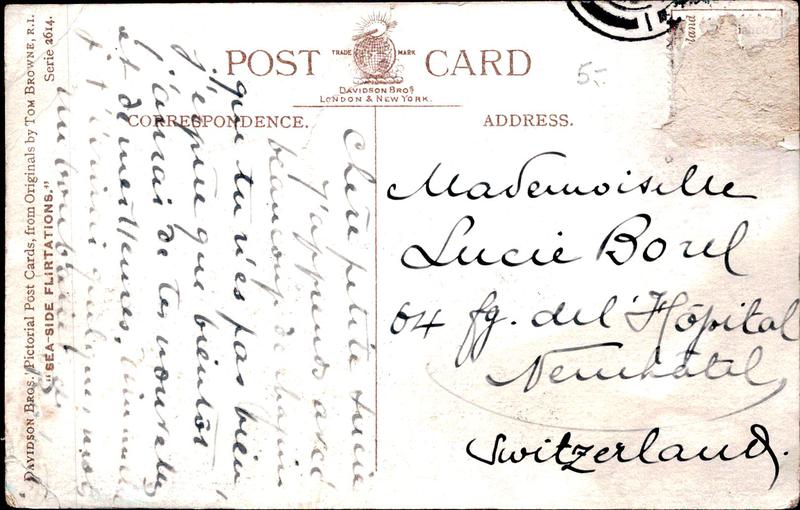 POST CARD
TRADE MARK
DAVIDSON BROS
LONDON & NEW YORK.
CORRESPONDENCE.
ADDRESS.
5-
land
DAVIDSON BROS. Pictorial Post Cards, from Originals by TOM BROWNE, R.I.
Serie 2614.
"SEA-SIDE FLIRTATIONS."
Chère petite Lucie
J'apprends avec
beaucoup de chagrin
que tu n'es pas bien,
j'espère que bientôt
j'aurais de tes nouvelles
et de meilleures,
Mademoiselle
Lucie Borel
64 fg. del'Hôpital
Neuchâtel,
Switzerland.